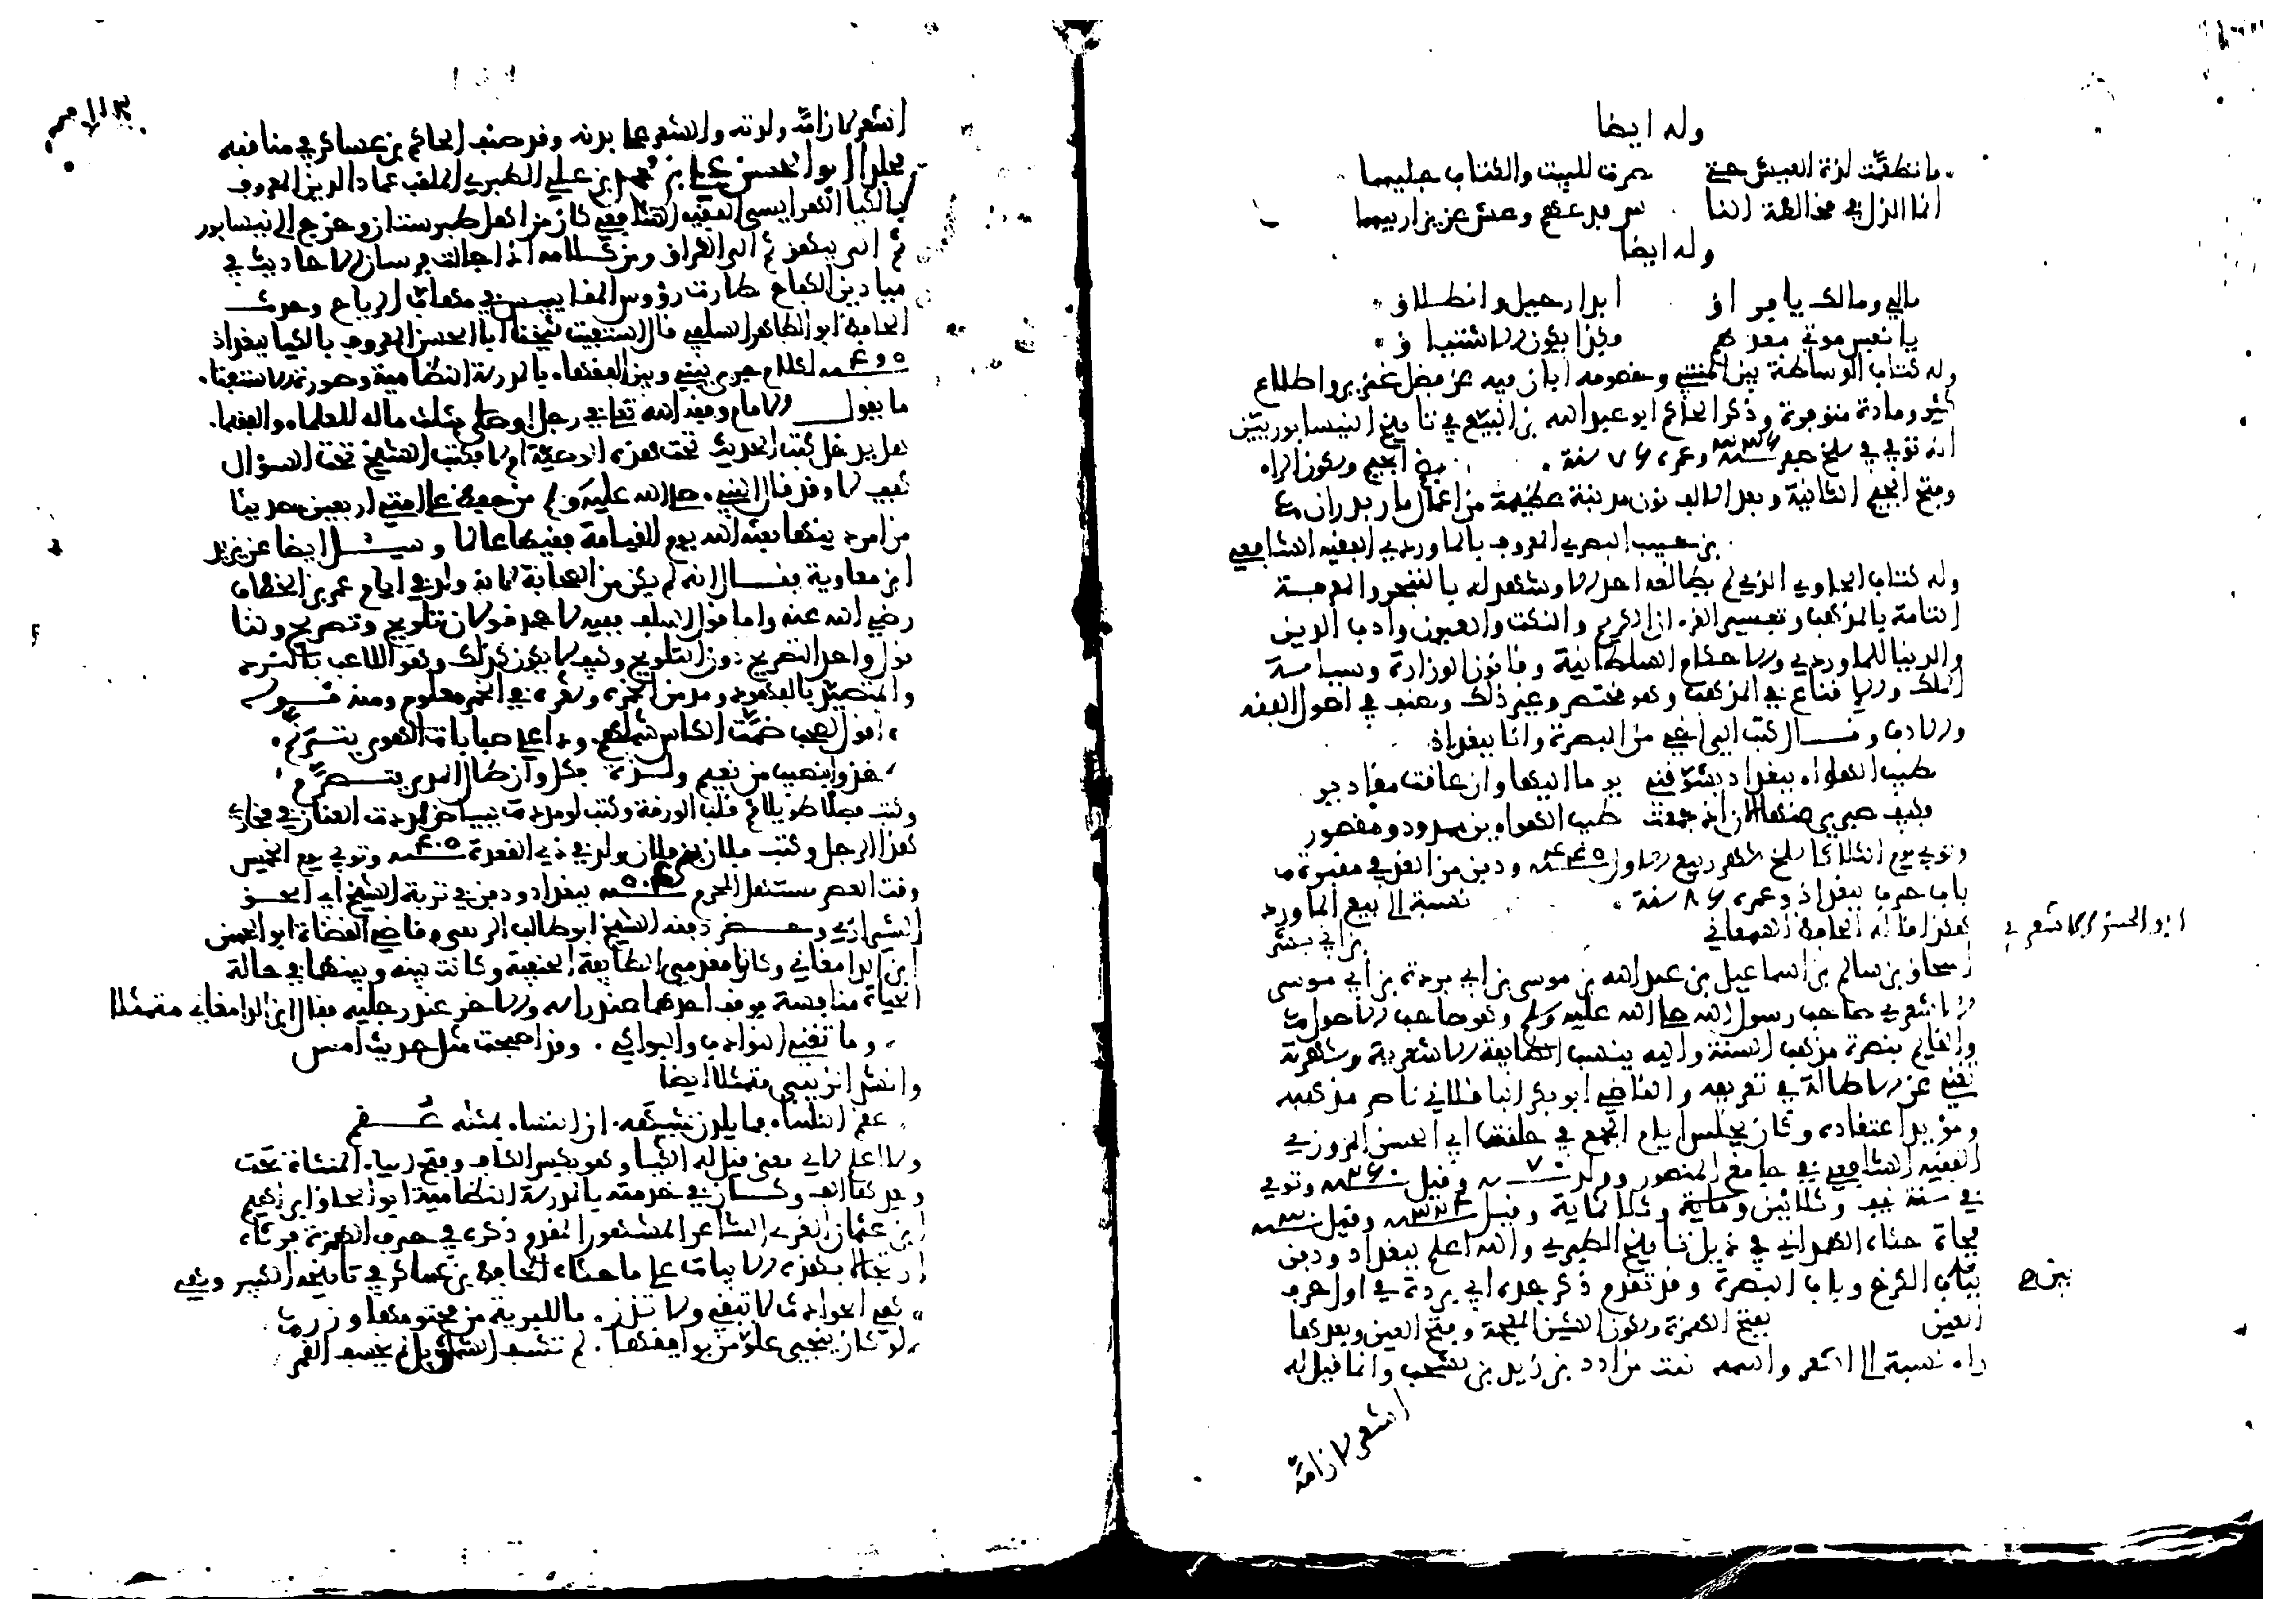 وله ايضا
ما تطعّمت لذة العيش حتى صرت للبيت والكتاب جليسا
انما الذل في مخالطة الناس فدعهم وعش عزيزا رييسا
وله ايضا
مالي ومالك يا فراق ابدا رحيل وانطلاق
يا نفس موتي بعدهم وكذا يكون الاشتياق
وله كتاب الوساطة بين المتنبي وخصومه ابان فيه عن فضل غزير واطلاع
كثير ومادة متوفرة وذكر الحاكم ابو عبد الله بن البيّع في تاريخ النيسابوريين
انه توفي في سلخ صفر وعمره ٧٦ سنة . بضم الجيم وسكون الراء
وفتح الجيم الثانية وبعد الالف نون مدينة عظيمة من اعمال مازندران
بن حبيب البصري المعروف بالماوردي الفقيه الشافعي
وله كتاب الحاوي الذي لم يطالعه احد الا وشهد له بالتبحر والمعرفة
التامة بالمذهب وتفسير القرءان الكريم والنكت والعيون وادب الدين
والدنيا للماوردي والاحكام السلطانية وقانون الوزارة وسياسة
الملك والاقناع في المذهب وهو مختصر وغير ذلك وصنف في اصول الفقه
والادب وقال كتب الي اخي من البصرة وانا ببغداذ
طيب الهواء ببغداد يشوّقني يوما اليها وان عاقت مقادير
فكيف صبري عنها الان اذ جمعت طيب الهواءين ممدود ومقصور
وتوفي يوم الثلاثا سلخ شهر ربيع الاول ودفن من الغد في مقبرة
باب حرب ببغداذ وعمره ٨٦ سنة . نسبة الى بيع الماورد
هكذا قاله الحافظ السمعاني بن ابي بشر
ابو الحسن الاشعري
اسحاق بن سالم بن اسماعيل بن عبد الله بن موسى بن ابي بردة بن ابي موسى
الاشعري صاحب رسول الله صلى الله عليه وسلم وهو صاحب الاصول
والقايم بنصرة مذهب السنة واليه ينسب الطايفة الاشعرية وشهرته
تغني عن الاطالة في تعريفه والقاضي ابو بكر الباقلاني ناصر مذهبه
ومؤيد اعتقاده وكان يجلس ايام الجمع في حلقة ابي الحسن المروزي
الفقيه الشافعي في جامع المنصور ومولد وقيل وتوفي
في سنة نيف وثلاثين وثلاثماية وقيل وقيل
فجاة حكاه الهمداني في ذيل تاريخ الطبري والله اعلم ببغداد ودفن
بين
بباب الكرخ وباب البصرة وقد تقدم ذكر جده ابي بردة في اول حرف
العين بفتح الهمزة وسكون الشين المعجمة وفتح العين وبعدها
راء نسبة الى اشعر واسمه نبت بن ادد بن زيد بن يشجب وانما قيل له
اشعر لان امّه
اشعر لان امّه ولدته والشعر على بدنه وقد صنف الحافظ بن عساكر في مناقبه
مجلدا ابو الحسن علي بن محمد بن علي الطبري الملقب عماد الدين المعروف
بالكيا الهراسي الفقيه الشافعي كان من اهل طبرستان وخرج الى نيسابور
ثم الى بيهق ثم الى العراق ومن كلامه اذا جالت فرسان الاحاديث في
ميادين الكفاح طارت رؤوس المقاييس في مهاب الرياح وحدث
الحافظ ابو الطاهر السلفي قال استفتيت شيخنا ابا الحسن المعروف بالكيا ببغداذ
لكلام جرى بيني وبين الفقهاء بالمدرسة النظامية وصورة الاستفتاء
ما يقول الامام وفقه الله تعالى في رجل اوصى بثلث ماله للعلماء والفقهاء
هل يدخل كتبة الحديث تحت هذه الوصية ام لا فكتب الشيخ تحت السؤال
نعم كيف لا وقد قال النبي صلى الله عليه وسلم من حفظ على امتي اربعين حديثا
من امر دينها بعثه الله يوم القيامة فقيها عالما وسئل ايضا عن يزيد
ابن معاوية فقال انه لم يكن من الصحابة لانه ولد في ايام عمر بن الخطاب
رضي الله عنه واما قول السلف ففيه لاحمد قولان تلويح وتصريح ولنا
قول واحد التصريح دون التلويح وكيف لا يكون كذلك وهو اللاعب بالنرد
والمتصيّد بالفهود ومدمن الخمر وشعره في الخمر معلوم ومنه قوله
اقول لصحب ضمّت الكاس شملهم وداعي صبابات الهوى يترنّم
خذوا بنصيب من نعيم ولذة فكل وان طال المدى يتصرّم
وكتب فصلا طويلا ثم قلب الورقة وكتب لو مددت ببياض لمددت العنان في مخازي
هذا الرجل وكتب فلان بن فلان ولد في ذي القعدة وتوفي يوم الخميس
وقت العصر مستهل المحرم ببغداد ودفن في تربة الشيخ ابي اسحق
الشيرازي وحضر دفنه الشيخ ابو طالب الزينبي وقاضي القضاة ابو الحسن
ابن الدامغاني وكانا مقدمي الطايفة الحنفية وكانت بينه وبينهما في حالة
الحياة منافسة فوقف احدهما عند راسه والاخر عند رجليه فقال ابن الدامغاني متمثلا
وما تغني النوادب والبواكي . وقد اصبحت مثل حديث امس
وانشد الزينبي متمثلا ايضا
عقم النساء فما يلدن شبيهه . ان النساء بمثله عُقم
ولا اعلم لاي معنى قيل له الكيا وهو بكسر الكاف وفتح الياء المثناة تحت
وبعدها الف وكان في خدمته بالمدرسة النظامية ابو اسحاق ابراهيم
ابن عثمان الغزي الشاعر المشهور المقدم ذكره في حرف الهمزة فرثاه
ارتجالا بهذه الابيات على ما حكاه الحافظ بن عساكر في تاريخه الكبير وهي
هي الحوادث لا تبقي ولا تذر . ما للبرية من محتومها وزر
لو كان ينجي علوّ من بوايقها . لم تكسف الشمس بل لم يخسف القمر